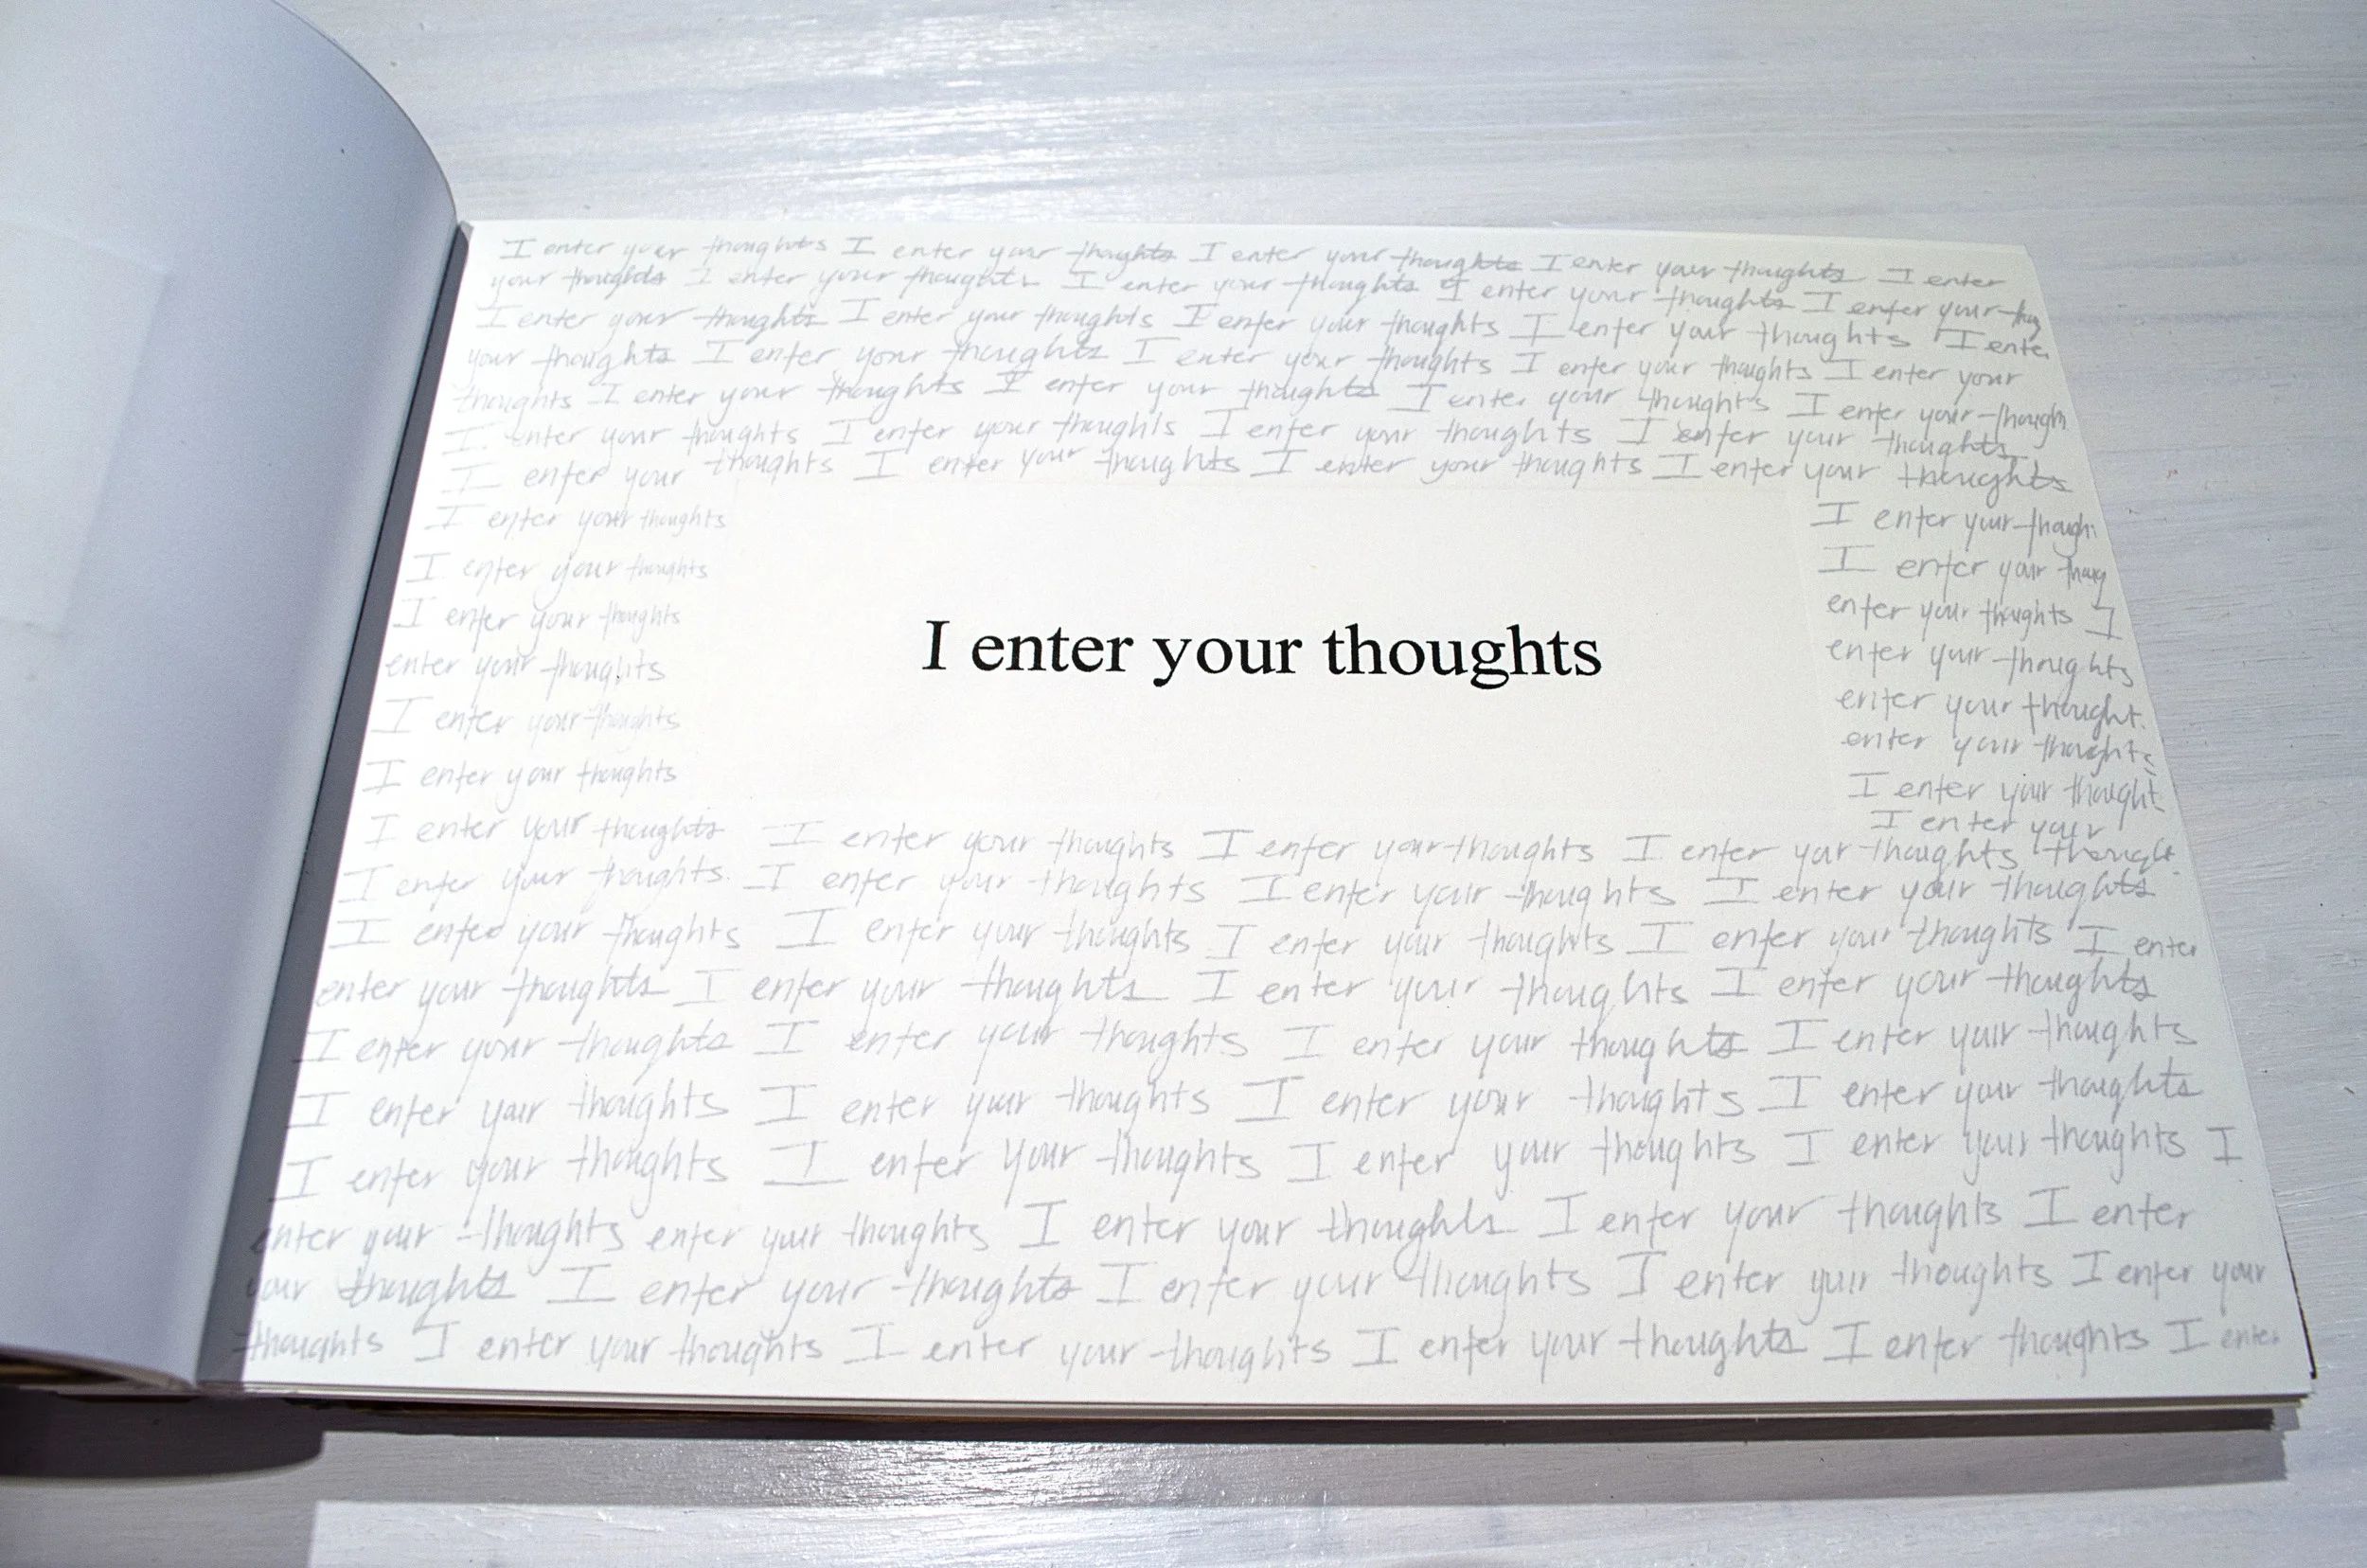 I enter your thoughts I enter your thoughts I enter your thoughts I enter your thoughts I enter
your thoughts I enter your thoughts I enter your thoughts I enter your thoughts I enter your thog
I enter your thoughts I enter your thoughts I enter your thoughts I enter your thoughts I enter
your thoughts I enter your thoughts I enter your thoughts I enter your thoughts I enter your
thoughts I enter your thoughts I enter your thoughts I enter your thoughts I enter your though
I enter your thoughts I enter your thoughts I enter your thoughts I enter your thoughts
I enter your thoughts I enter your thoughts I enter your thoughts I enter your thoughts
I enter your thoughts I enter your though
I enter your thoughts I enter your thoug
I enter your thoughts enter your thoughts I
I enter your thoughts
enter your thoughts enter your thoughts
I enter your thoughts enter your thought
I enter your thoughts enter your thoughts
I enter your thought
I enter your
I enter your thoughts I enter your thoughts I enter your thoughts I enter your thoughts thought
I enter your thoughts I enter your thoughts I enter your thoughts I enter your thoughts
I enter your thoughts I enter your thoughts I enter your thoughts I enter your thoughts I enter
enter your thoughts I enter your thoughts I enter your thoughts I enter your thoughts
I enter your thoughts I enter your thoughts I enter your thoughts I enter your thoughts
I enter your thoughts I enter your thoughts I enter your thoughts I enter your thoughts
I enter your thoughts I enter your thoughts I enter your thoughts I enter your thoughts I
enter your thoughts enter your thoughts I enter your thoughts I enter your thoughts I enter
your thoughts I enter your thoughts I enter your thoughts I enter your thoughts I enter your
thoughts I enter your thoughts I enter your thoughts I enter your thoughts I enter thoughts I enter